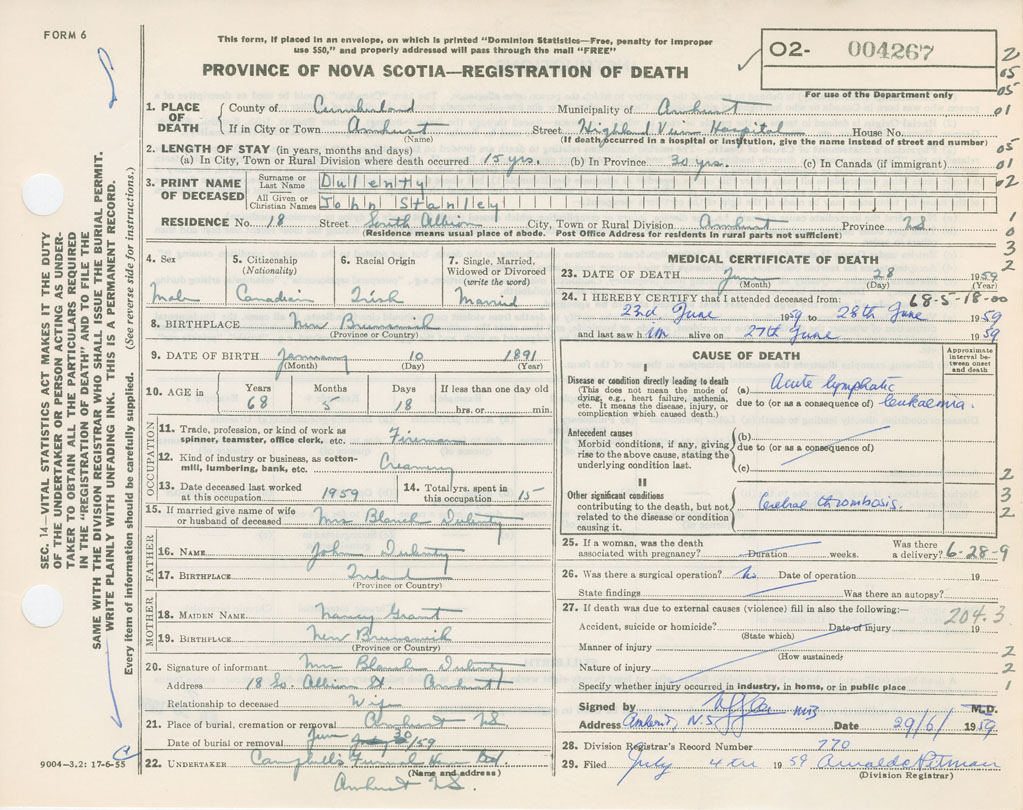 FORM 6
This form, if placed in an envelope, on which is printed "Dominion Statistics—Free, penalty for improper
use $50," and properly addressed will pass through the mail "FREE"
PROVINCE OF NOVA SCOTIA—REGISTRATION OF DEATH
O2- 004267
For use of the Department only
2
05
05
01
05
01
02
1
0
3
2
SEC. 14—VITAL STATISTICS ACT MAKES IT THE DUTY
OF THE UNDERTAKER OR PERSON ACTING AS UNDER-
TAKER TO OBTAIN ALL THE PARTICULARS REQUIRED
IN THE "REGISTRATION OF DEATH" AND TO FILE THE
SAME WITH THE DIVISION REGISTRAR WHO SHALL ISSUE THE BURIAL PERMIT.
WRITE PLAINLY WITH UNFADING INK. THIS IS A PERMANENT RECORD.
Every item of information should be carefully supplied. (See reverse side for instructions.)
1. PLACE OF DEATH
County of Cumberland Municipality of Amherst
If in City or Town Amherst Street Highland View Hospital House No.
(Name) (If death occurred in a hospital or institution, give the name instead of street and number)
2. LENGTH OF STAY (in years, months and days)
(a) In City, Town or Rural Division where death occurred 15 yrs. (b) In Province 30 yrs. (c) In Canada (if immigrant)
3. PRINT NAME OF DECEASED
Surname or Last Name Dulenty
All Given or Christian Names John Stanley
RESIDENCE No. 18 Street South Albion City, Town or Rural Division Amherst Province NS.
(Residence means usual place of abode. Post Office Address for residents in rural parts not sufficient)
4. Sex 5. Citizenship (Nationality) 6. Racial Origin 7. Single, Married, Widowed or Divorced (write the word)
Male Canadian Irish Married
8. BIRTHPLACE New Brunswick
(Province or Country)
9. DATE OF BIRTH January 10 1891
(Month) (Day) (Year)
10. AGE in Years Months Days If less than one day old
68 5 18 hrs. or min.
OCCUPATION
11. Trade, profession, or kind of work as
spinner, teamster, office clerk, etc. Fireman
12. Kind of industry or business, as cotton-
mill, lumbering, bank, etc. Creamery
13. Date deceased last worked
at this occupation 1959
14. Total yrs. spent in
this occupation 15
15. If married give name of wife
or husband of deceased Mrs Blanch Dulenty
FATHER
16. NAME John Dulenty
17. BIRTHPLACE Ireland
(Province or Country)
MOTHER
18. MAIDEN NAME Nancy Grant
19. BIRTHPLACE New Brunswick
(Province or Country)
20. Signature of informant Mrs Blanch Dulenty
Address 18 So. Albion St. Amherst
Relationship to deceased Wife
21. Place of burial, cremation or removal Amherst NS
Date of burial or removal June 30/59
22. UNDERTAKER Campbell's Funeral Home
(Name and address)
Amherst NS.
9004-3.2: 17-6-55 C
MEDICAL CERTIFICATE OF DEATH
23. DATE OF DEATH June 28 1959
(Month) (Day) (Year)
24. I HEREBY CERTIFY that I attended deceased from: 68-5-18-00
23rd June 1959 to 28th June 1959
and last saw him alive on 27th June 1959
CAUSE OF DEATH
Approximate interval between onset and death
I
Disease or condition directly leading to death
(This does not mean the mode of
dying, e.g., heart failure, asthenia,
etc. It means the disease, injury, or
complication which caused death.)
(a) Acute lymphatic
due to (or as a consequence of) leukaemia.
Antecedent causes
Morbid conditions, if any, giving
rise to the above cause, stating the
underlying condition last.
(b)
due to (or as a consequence of)
(c)
II
Other significant conditions
contributing to the death, but not
related to the disease or condition
causing it.
Cerebral thrombosis.
2
3
2
25. If a woman, was the death
associated with pregnancy? Duration weeks. Was there
a delivery? 6-28-9
26. Was there a surgical operation? No Date of operation 19
State findings Was there an autopsy?
27. If death was due to external causes (violence) fill in also the following:—
204.3
Accident, suicide or homicide? Date of injury 19
(State which)
Manner of injury 2
(How sustained)
Nature of injury 2
Specify whether injury occurred in industry, in home, or in public place 1
Signed by M.D.
Address Amherst, N.S. Date 29/6/1959
28. Division Registrar's Record Number 770
29. Filed July 4th 1959 Arnold C Pitman
(Division Registrar)